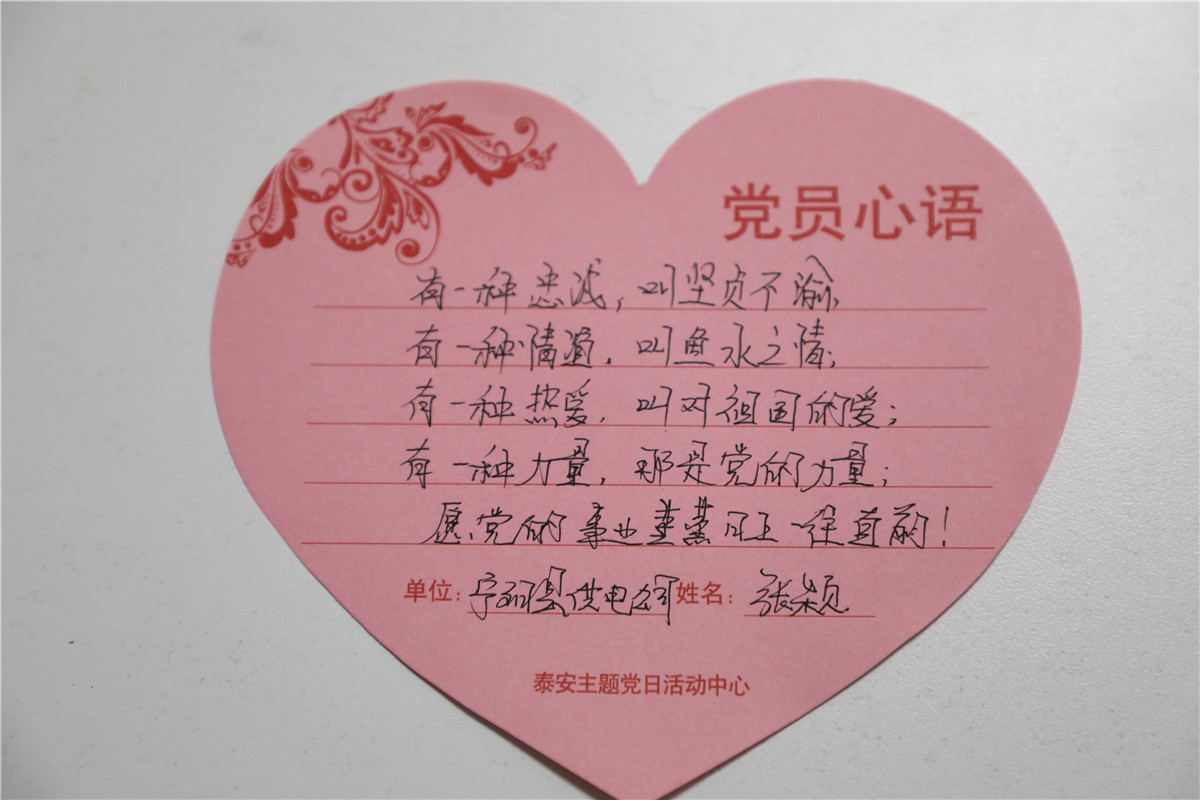 党员心语
有一种忠诚，叫坚贞不渝；
有一种情谊，叫鱼水之情；
有一种热爱，叫对祖国的爱；
有一种力量，那是党的力量；
愿党的事业蒸蒸日上一往直前！
单位：宁阳县供电公司 姓名：张颖
泰安主题党日活动中心